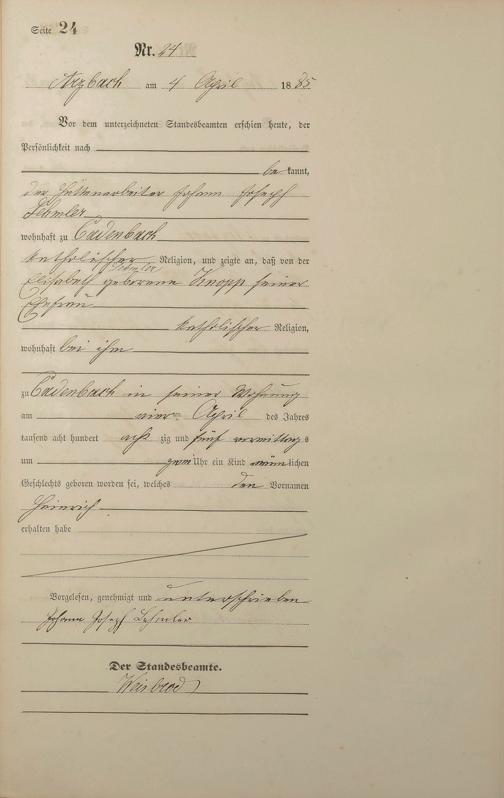 Seite 24
Nr. 24
Arzbach am 4 April 1885
Vor dem unterzeichneten Standesbeamten erschien heute, der
Persönlichkeit nach
be kannt,
der Hüttenarbeiter Johann Joseph
Lehmler
wohnhaft zu Cadenbach
katholischer Religion, und zeigte an, daß von der
Lehmler
Elisabeth geborene Knopp seiner
Ehefrau
katholischer Religion,
wohnhaft bei ihm
zu Cadenbach in seiner Wohnung
am vier April des Jahres
tausend acht hundert acht zig und fünf vormittags
um zwei Uhr ein Kind männlichen
Geschlechts geboren worden sei, welches den Vornamen
Heinrich
erhalten habe
Vorgelesen, genehmigt und unterschrieben
Johann Josepf Lehmler
Der Standesbeamte.
Weisbrod